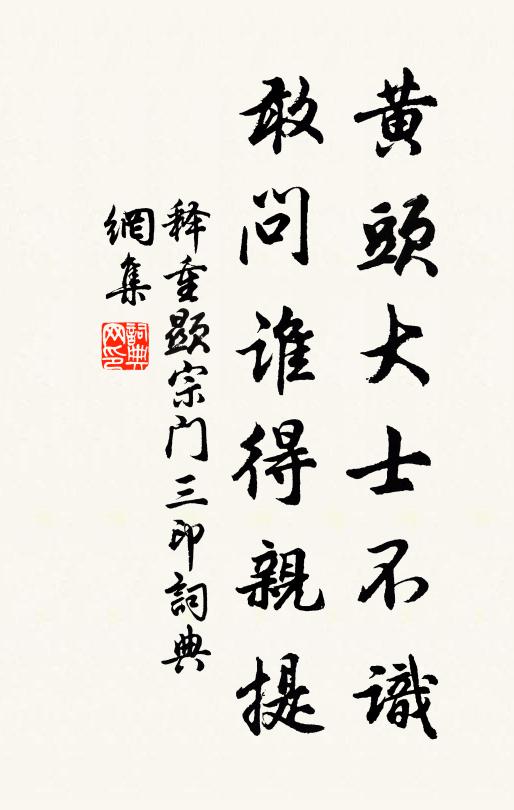 黄頭大士不識
敢問誰得親提
释重顯宗门三印詞典
網集
詞典
网印